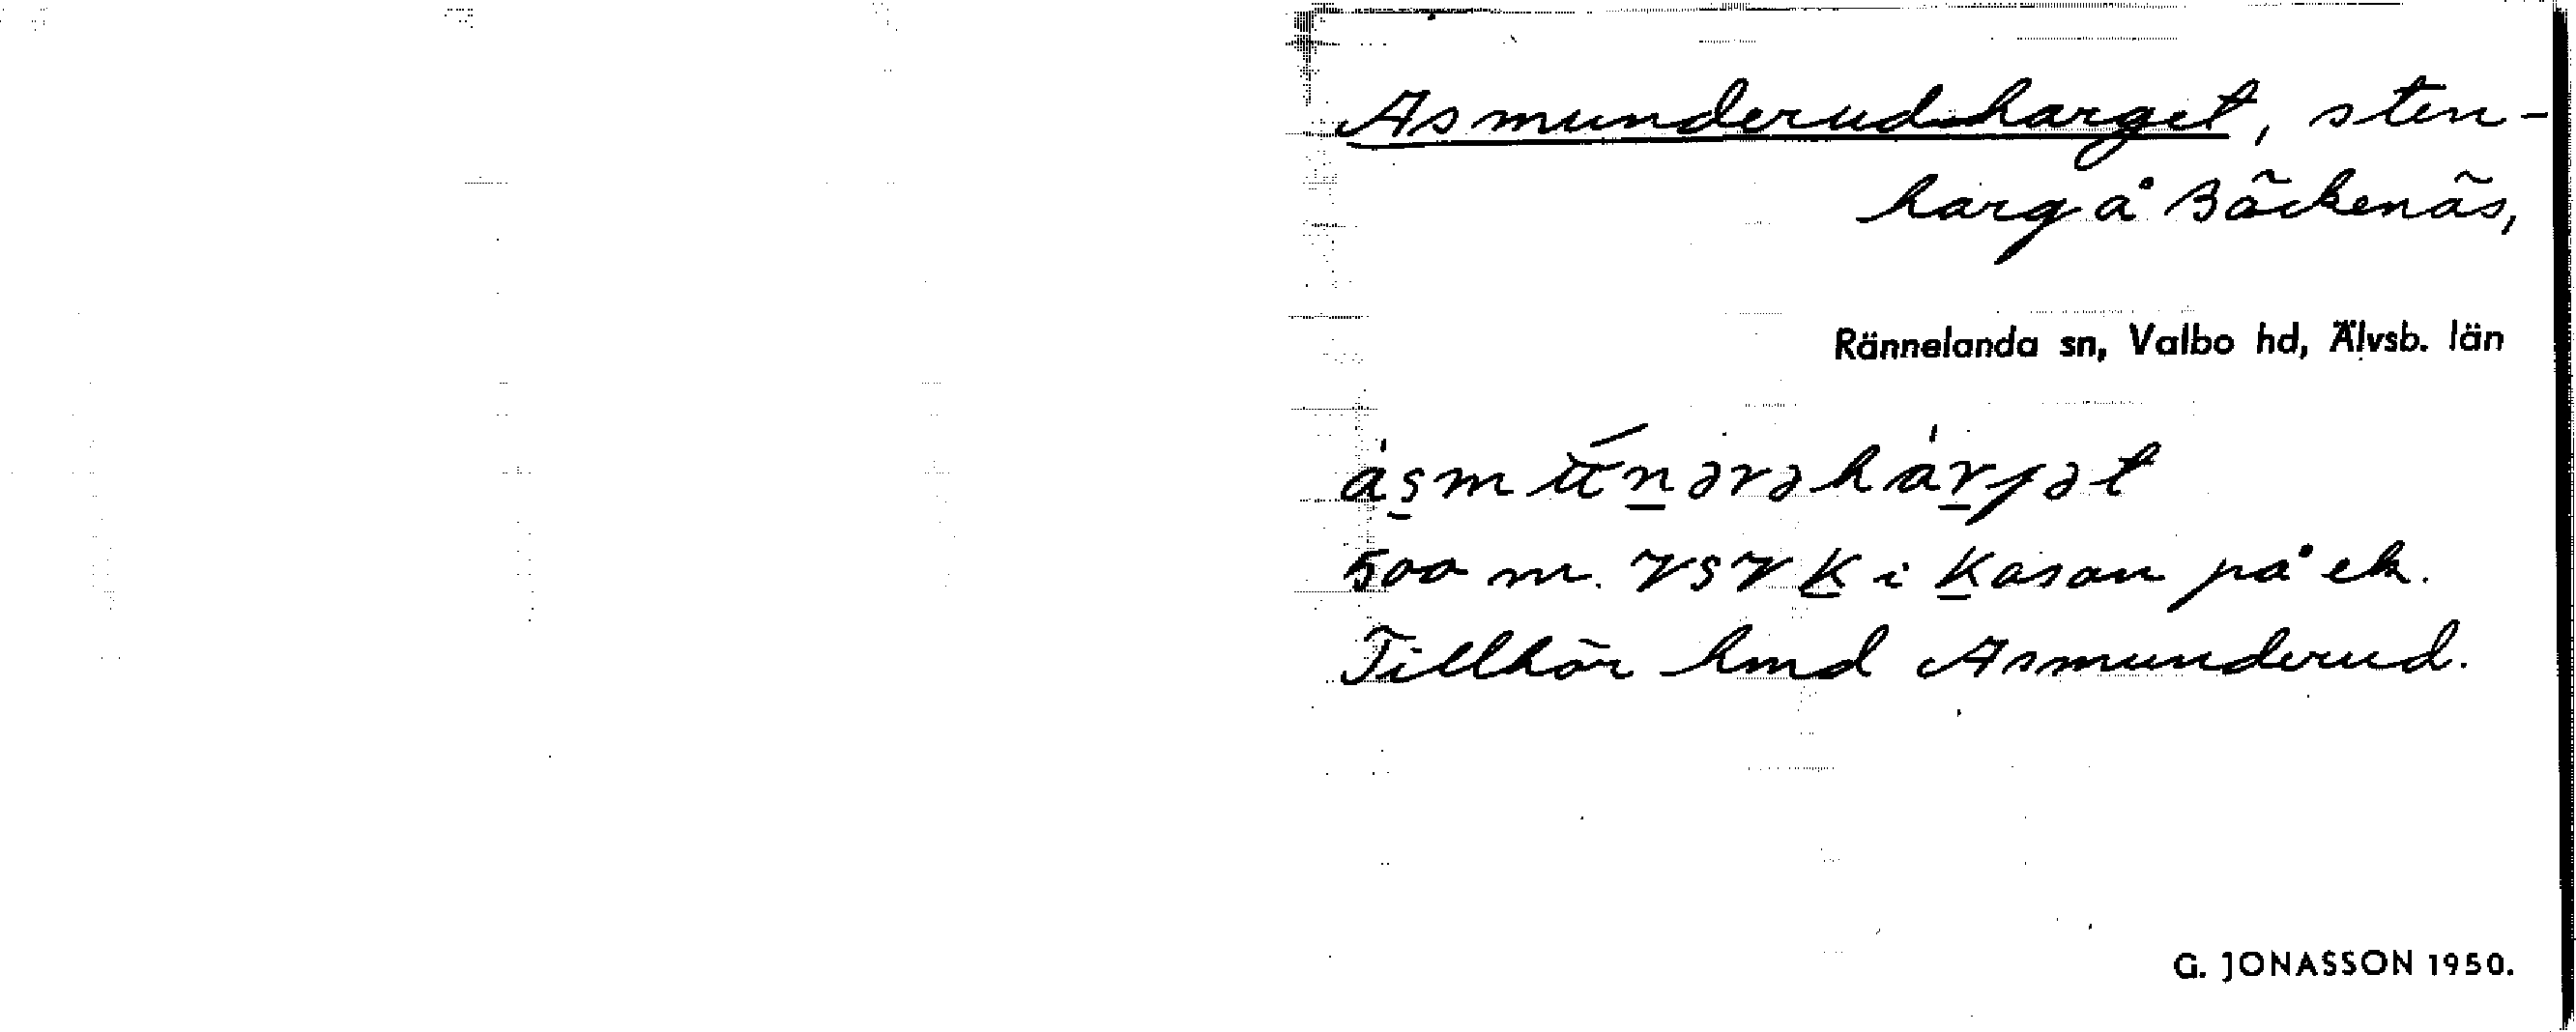 Asmunderudsharget, sten-
harg å Bäckenäs,
Rännelanda sn, Valbo hd, Älvsb. län
500 m. VSV K i Kasan på ek.
Tillhör hmd Asmunderud.
G. JONASSON 1950.